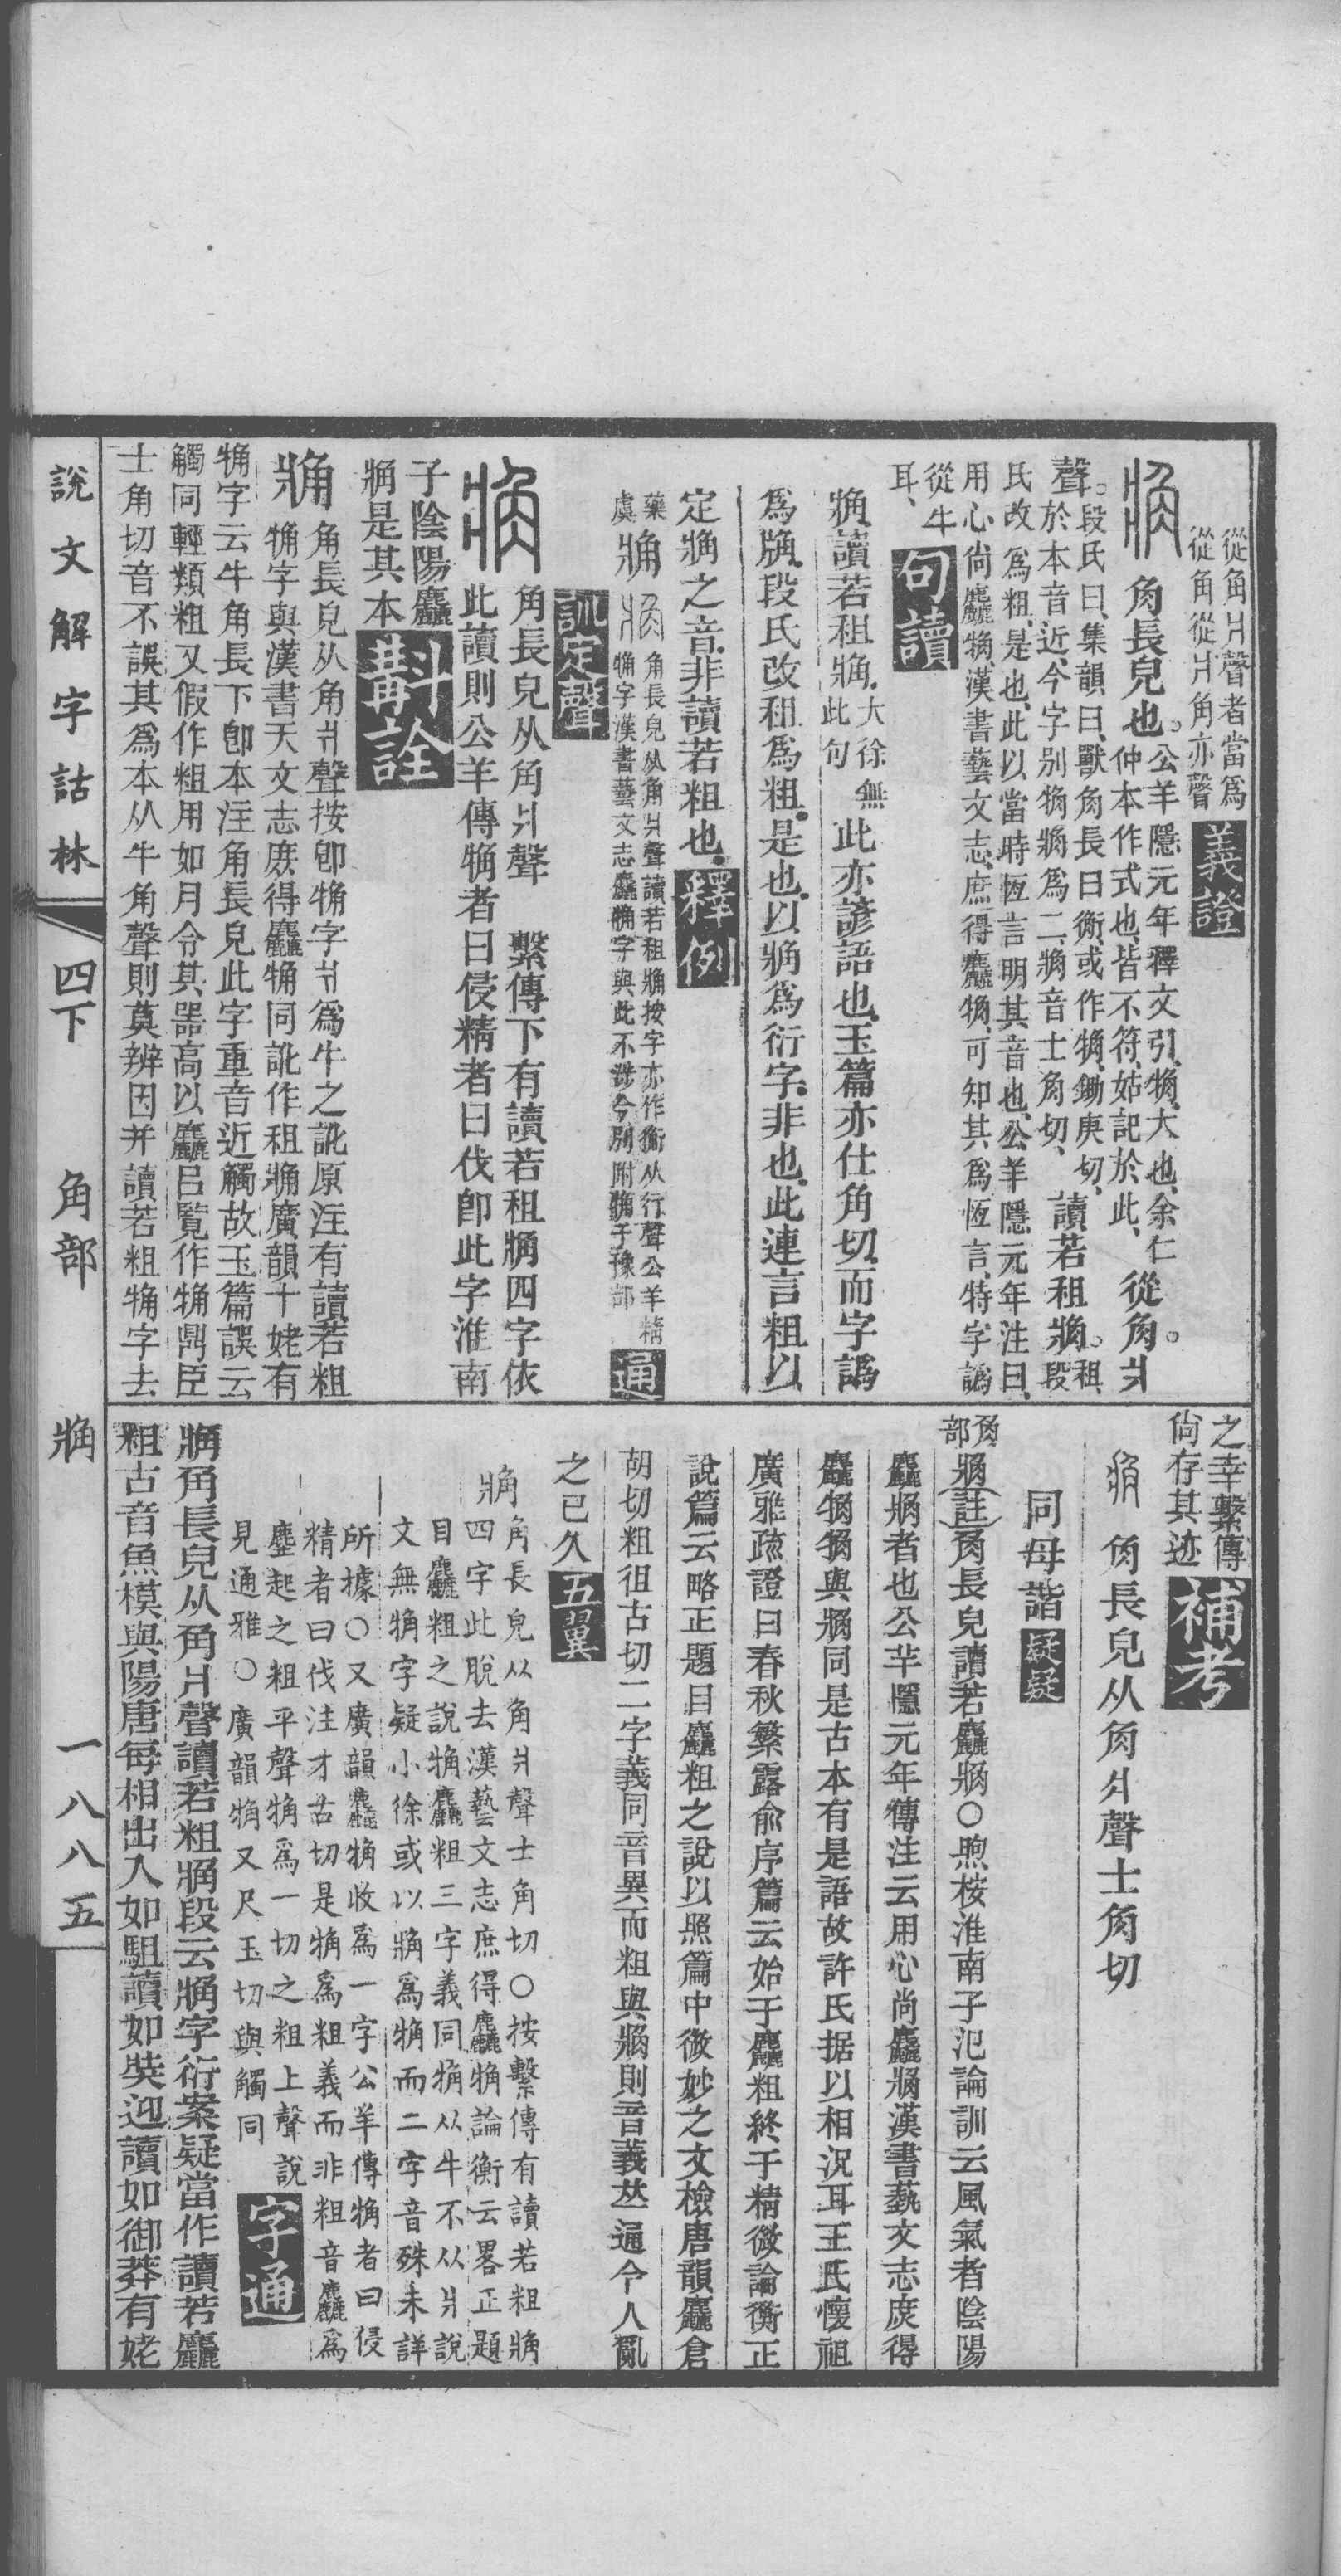 從角爿聲者當爲
從角從爿角亦聲
義證
角長皃也。公羊隱元年釋文引、觕、大也、余仁
仲本作式也、皆不符、姑記於此、從角。爿
聲。段氏曰、集韻曰、獸角長曰衡、或作觕、鋤庚切、
於本音近、今字別觕䚗爲二、䚗音士角切、讀若粗䚗。粗段
氏改爲粗、是也、此以當時恆言明其音也、公羊隱元年注曰、
用心尚麤觕、漢書藝文志、庶得麤觕、可知其爲恆言、特字譌
從牛
耳、
句讀
䚗、讀若租䚗、大徐無此句此亦諺語也、玉篇亦仕角切、而字譌
爲牕、段氏改租爲粗、是也、以䚗爲衍字、非也、此連言粗、以
定䚗之音、非讀若粗也、釋例
䚗角長皃从角爿聲讀若租䚗按字亦作衡从行聲公羊精
觕字漢書藝文志麤觕字與此不涉今別附觕于豫部
通
訓定聲
角長皃从角爿聲　繫傳下有讀若租䚗四字依
此讀則公羊傳觕者曰侵精者曰伐卽此字淮南
子陰陽麤
䚗是其本
斠詮
䚗角長皃从角爿聲按卽觕字爿爲牛之訛原注有讀若粗
觕字與漢書天文志庶得麤觕同訛作租䚗廣韻十姥有
觕字云牛角長下卽本注角長皃此字重音近觸故玉篇誤云
觸同輕類粗又假作粗用如月令其器高以麤呂覽作觕鼎臣
士角切音不誤其爲本从牛角聲則莫辨因并讀若粗觕字去
之幸繫傳
尚存其迹
補考
角長皃从角爿聲士角切
同母諧
疑疑
角部
䚗註角長皃讀若麤䚗〇煦桉淮南子氾論訓云風氣者陰陽
麤䚗者也公羊隱元年傳注云用心尚麤䚗漢書藝文志庶得
麤觕觕與䚗同是古本有是語故許氏据以相況耳王氏懷祖
廣雅疏證曰春秋繁露俞序篇云始于麤粗終于精微論衡正
說篇云略正題目麤粗之說以照篇中微妙之文檢唐韻麤倉
胡切粗徂古切二字義同音異而粗與䚗則音義竝通今人亂
之已久
五翼
䚗角長皃从角爿聲士角切〇按繫傳有讀若粗䚗
四字此脫去漢藝文志庶得麤觕論衡云畧正題
目麤粗之說觕麤粗三字義同觕从牛不从爿說
文無觕字疑小徐或以䚗爲觕而二字音殊未詳
所據〇又廣韻麤觕收爲一字公羊傳觕者曰侵
精者曰伐注才古切是觕爲粗義而非粗音麤爲
麈起之粗平聲觕爲一切之粗上聲說
見通雅〇廣韻觕又尺玉切與觸同
字通
䚗角長皃从角爿聲讀若粗䚗段云䚗字衍案疑當作讀若麤
粗古音魚模與陽唐每相出入如駔讀如奘迎讀如御莽有姥
說文解字詁林　四下　角部　䚗　一八八五